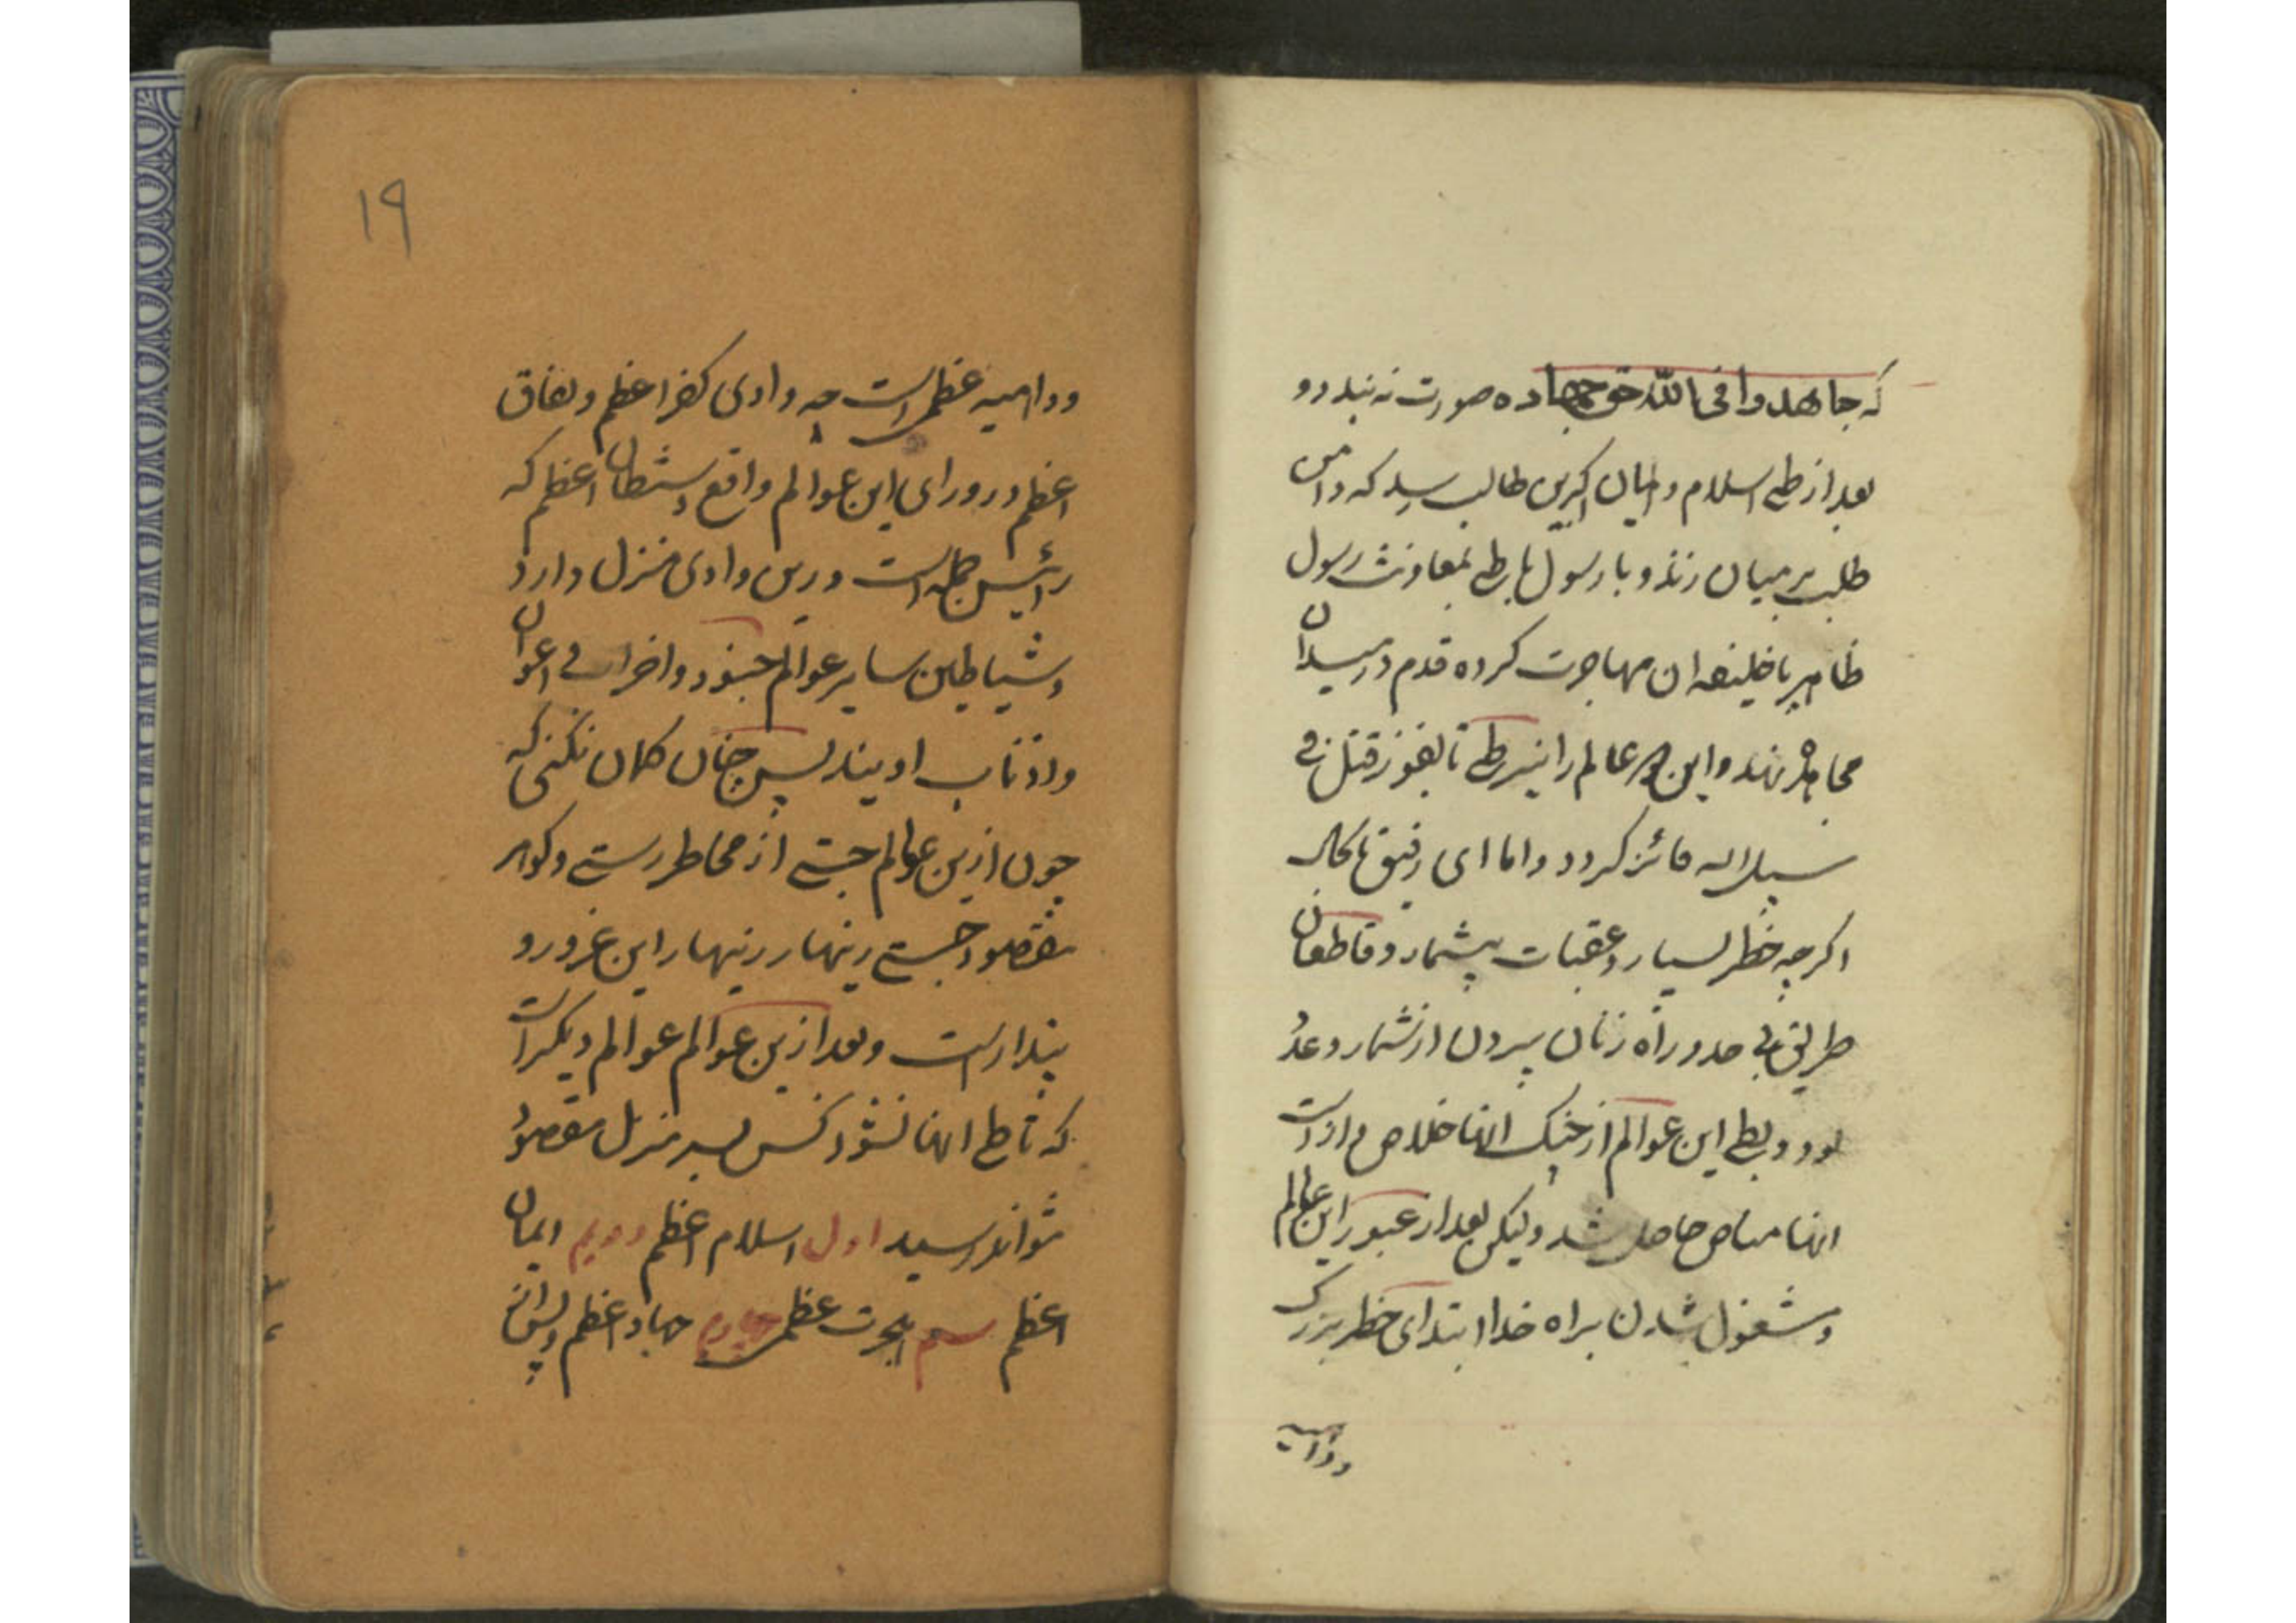 که جاهدوا فی الله حق جهاده صورت نه بندد و
بعد از طی اسلام و ایمان اکبرین طالب رسد که دامن
طلب بر میان زند و با رسول باطن بمعاونت رسول
ظاهر یا خلیفه ان مهاجرت کرده قدم در میدان
مجاهده نهد و این دو عالم را نیز طی تا بفوز قتل فی
سبیل الله فائز کردد و اما ای رفیق تا کنون
اکرچه خطر بسیار و عقبات بیشمار و قاطعان
طریق بی حد و راه زنان بیرون از شمار و عدد
بود و بطی این عوالم از جنک انها خلاص و از دست
انها مناص حاصل شد ولیکن بعد از عبور این عالم
و مشغول شدن براه خدا ابتدای خطر بزرک
و داهیه
۱۹
و داهیه عظمی است چه وادی کفر اعظم و نفاق
اعظم در ورای این عوالم واقع و شیطان اعظم که
رئیس جمله است درین وادی منزل دارد
و شیاطین سایر عوالم جنود و احزاب و اعوان
و اذناب اویند پس چنان کمان نکنی که
چون ازین عوالم جستی از مخاطر رستی و کوهر
مقصود جستی زینهار زینهار این غرور و
پندار است و بعد ازین عوالم عوالم دیکر است
که تا طی انها نشود کس بسر منزل مقصود
نتواند رسید اول اسلام اعظم دویم ایمان
اعظم سیم هجرت عظمی چهارم جهاد اعظم و پس از ان